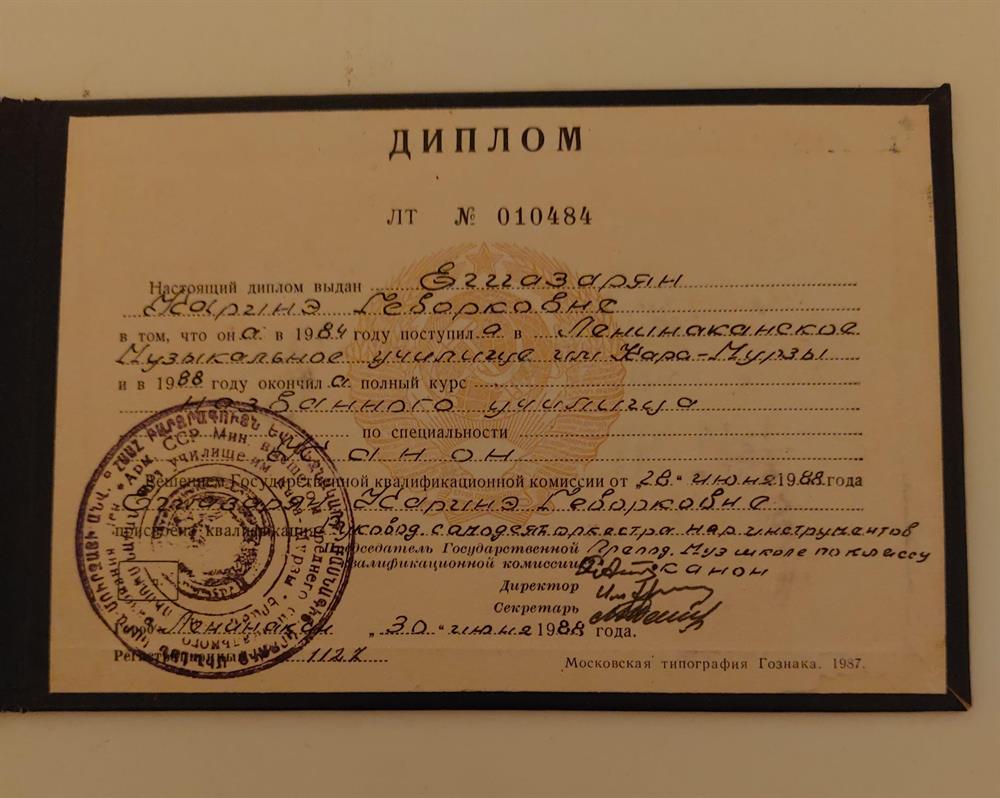 ДИПЛОМ
ЛТ № 010484
Настоящий диплом выдан Егиазарян
Каринэ Геворковне
в том, что она в 1984 году поступила в Ленинаканское
Музыкальное училище им Кара-Мурзы
и в 1988 году окончила полный курс
названного училища
по специальности
Канон
Решением Государственной квалификационной комиссии от „28“ июня 1988 года
Егиазарян Каринэ Геворковне
присвоена квалификация Руковод. самодеят оркестра нар инструментов
Председатель Государственной Препод. Муз школе по классу
квалификационной комиссии канон
Директор
Секретарь
Город Ленинакан „30“ июня 1988 года.
Регистрационный № 1127
Московская типография Гознака. 1987.